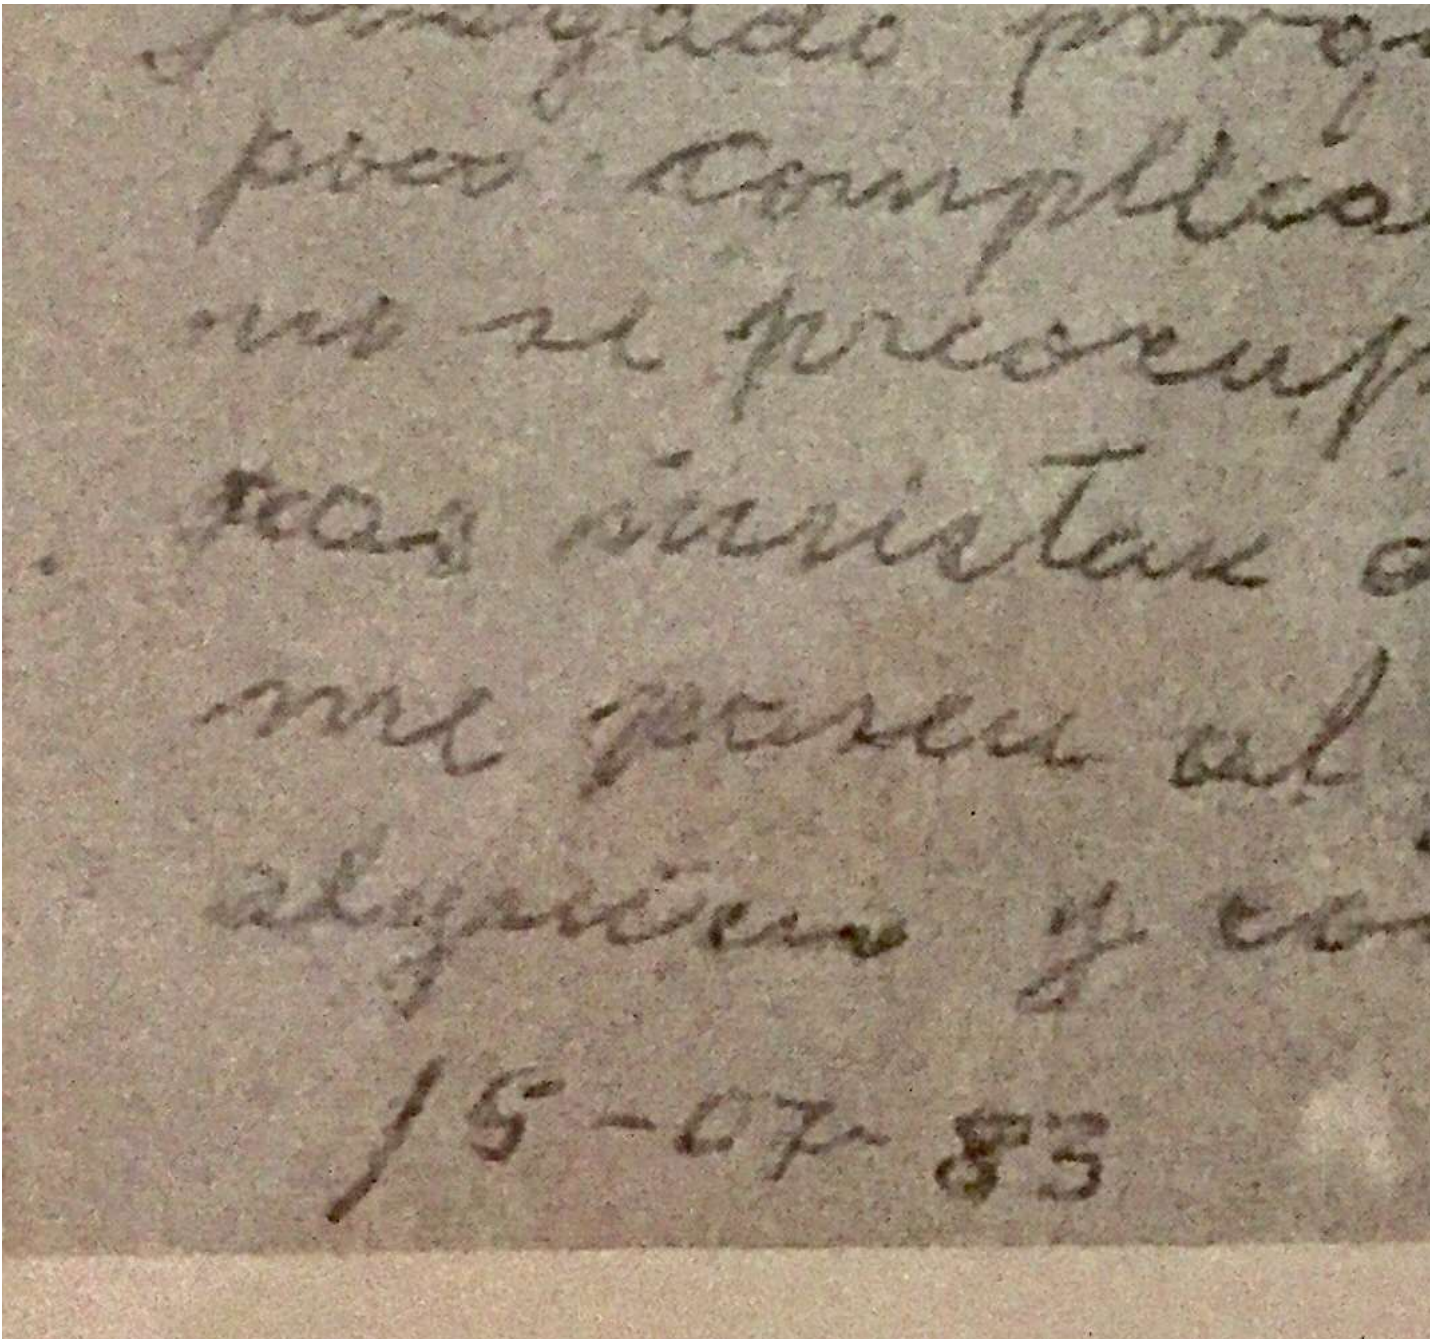 juzgado porq
poco complica
no se preocup
cas insistan a
me pasen al
alguien y co
15-07-83